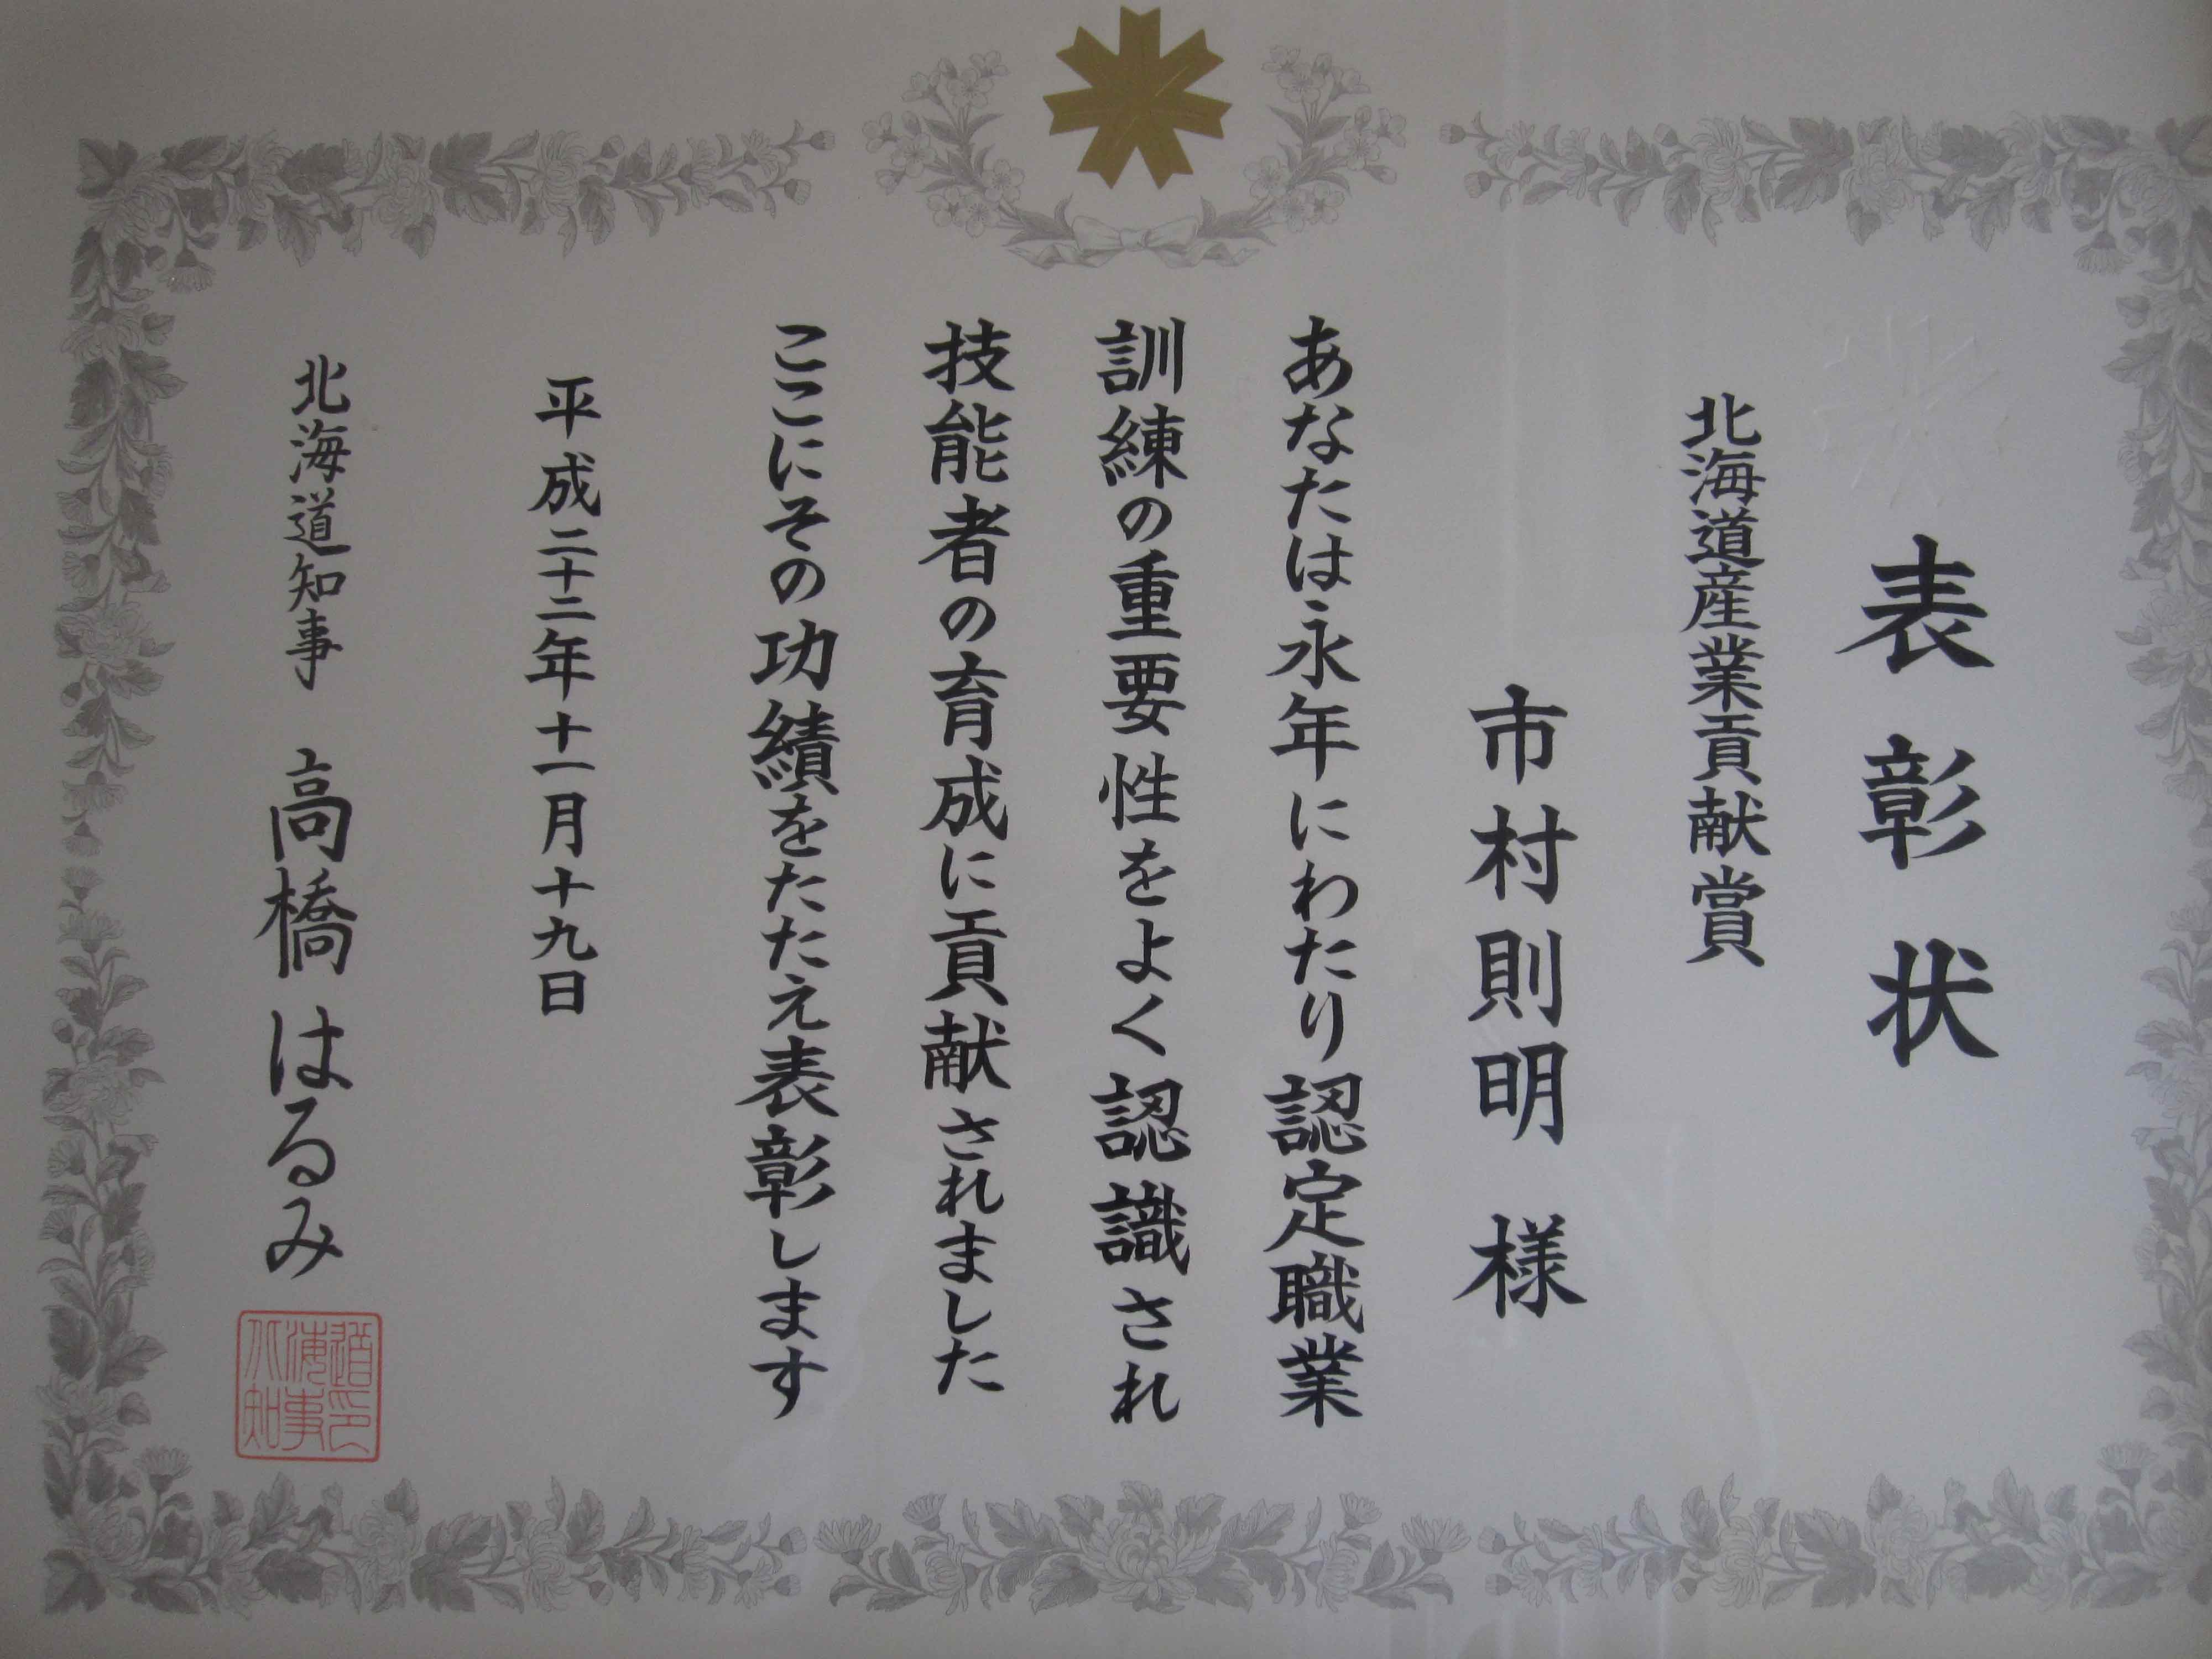 表彰状
北海道産業貢献賞
市村則明 様
あなたは永年にわたり認定職業
訓練の重要性をよく認識され
技能者の育成に貢献されました
ここにその功績をたたえ表彰します
平成二十二年十一月十九日
北海道知事 高橋はるみ
北海道知事印